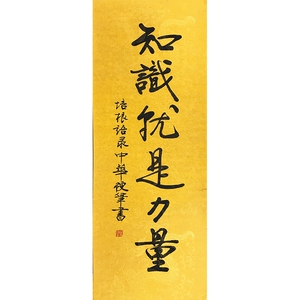 知識就是力量
培根語录中華硬筆書